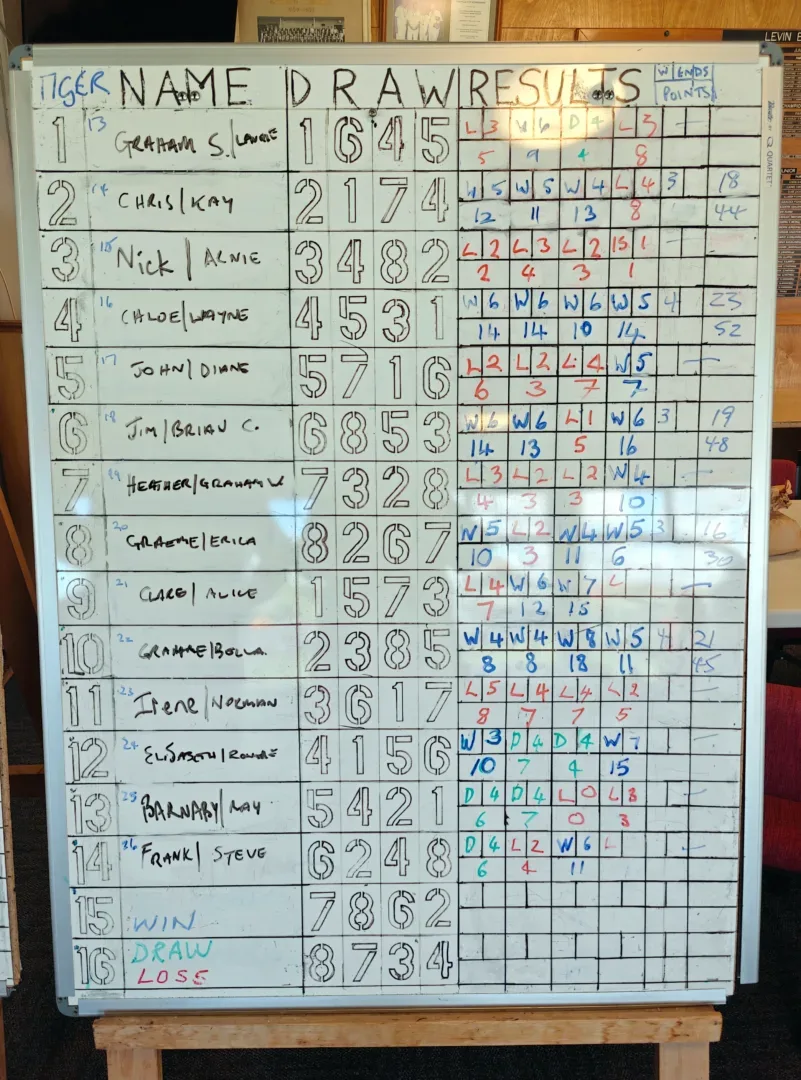 LEVIN B
TIGER NAME DRAW RESULTS W ENDS
POINTS
1 13 GRAHAM S./LAURIE 1 6 4 5 L 3 W 6 D 4 L 3 -
5 9 4 8
2 14 CHRIS/KAY 2 1 7 4 W 5 W 5 W 4 L 4 3 18
12 11 13 8 44
3 15 Nick/ARNIE 3 4 8 2 L 2 L 3 L 2 1 -
2 4 3 1
4 16 CHLOE/WAYNE 4 5 3 1 W 6 W 6 W 6 W 5 4 23
14 14 10 14 52
5 17 JOHN/DIANE 5 7 1 6 L 2 L 2 L 4 W 5 -
6 3 7 7
6 18 JIM/BRIAN C. 6 8 5 3 W 6 W 6 L 1 W 6 3 19
14 13 5 16 48
7 19 HEATHER/GRAHAM W 7 3 2 8 L 3 L 2 L 2 W 4 -
4 3 3 10
8 20 GRAEME/ERICA 8 2 6 7 W 5 L 2 W 4 W 5 3 16
10 3 11 6 30
9 21 CLARE/ALICE 1 5 7 3 L 4 W 6 W 7 L -
7 12 15
10 22 GRAHAME/BELLA. 2 3 8 5 W 4 W 4 W 8 W 5 4 21
8 8 18 11 45
11 23 Irene/NORMAN 3 6 1 7 L 5 L 4 L 4 L 2 -
8 7 7 5
12 24 ELISABETH/ 4 1 5 6 W 3 D 4 D 4 W 7 -
10 7 4 15
13 25 BARNABY/RAY 5 4 2 1 D 4 D 4 L 0 L 3 -
6 7 0 3
14 26 FRANK/STEVE 6 2 4 8 D 4 L 2 W 6 L -
6 4 11
15 WIN 7 8 6 2
16 DRAW 8 7 3 4
LOSE